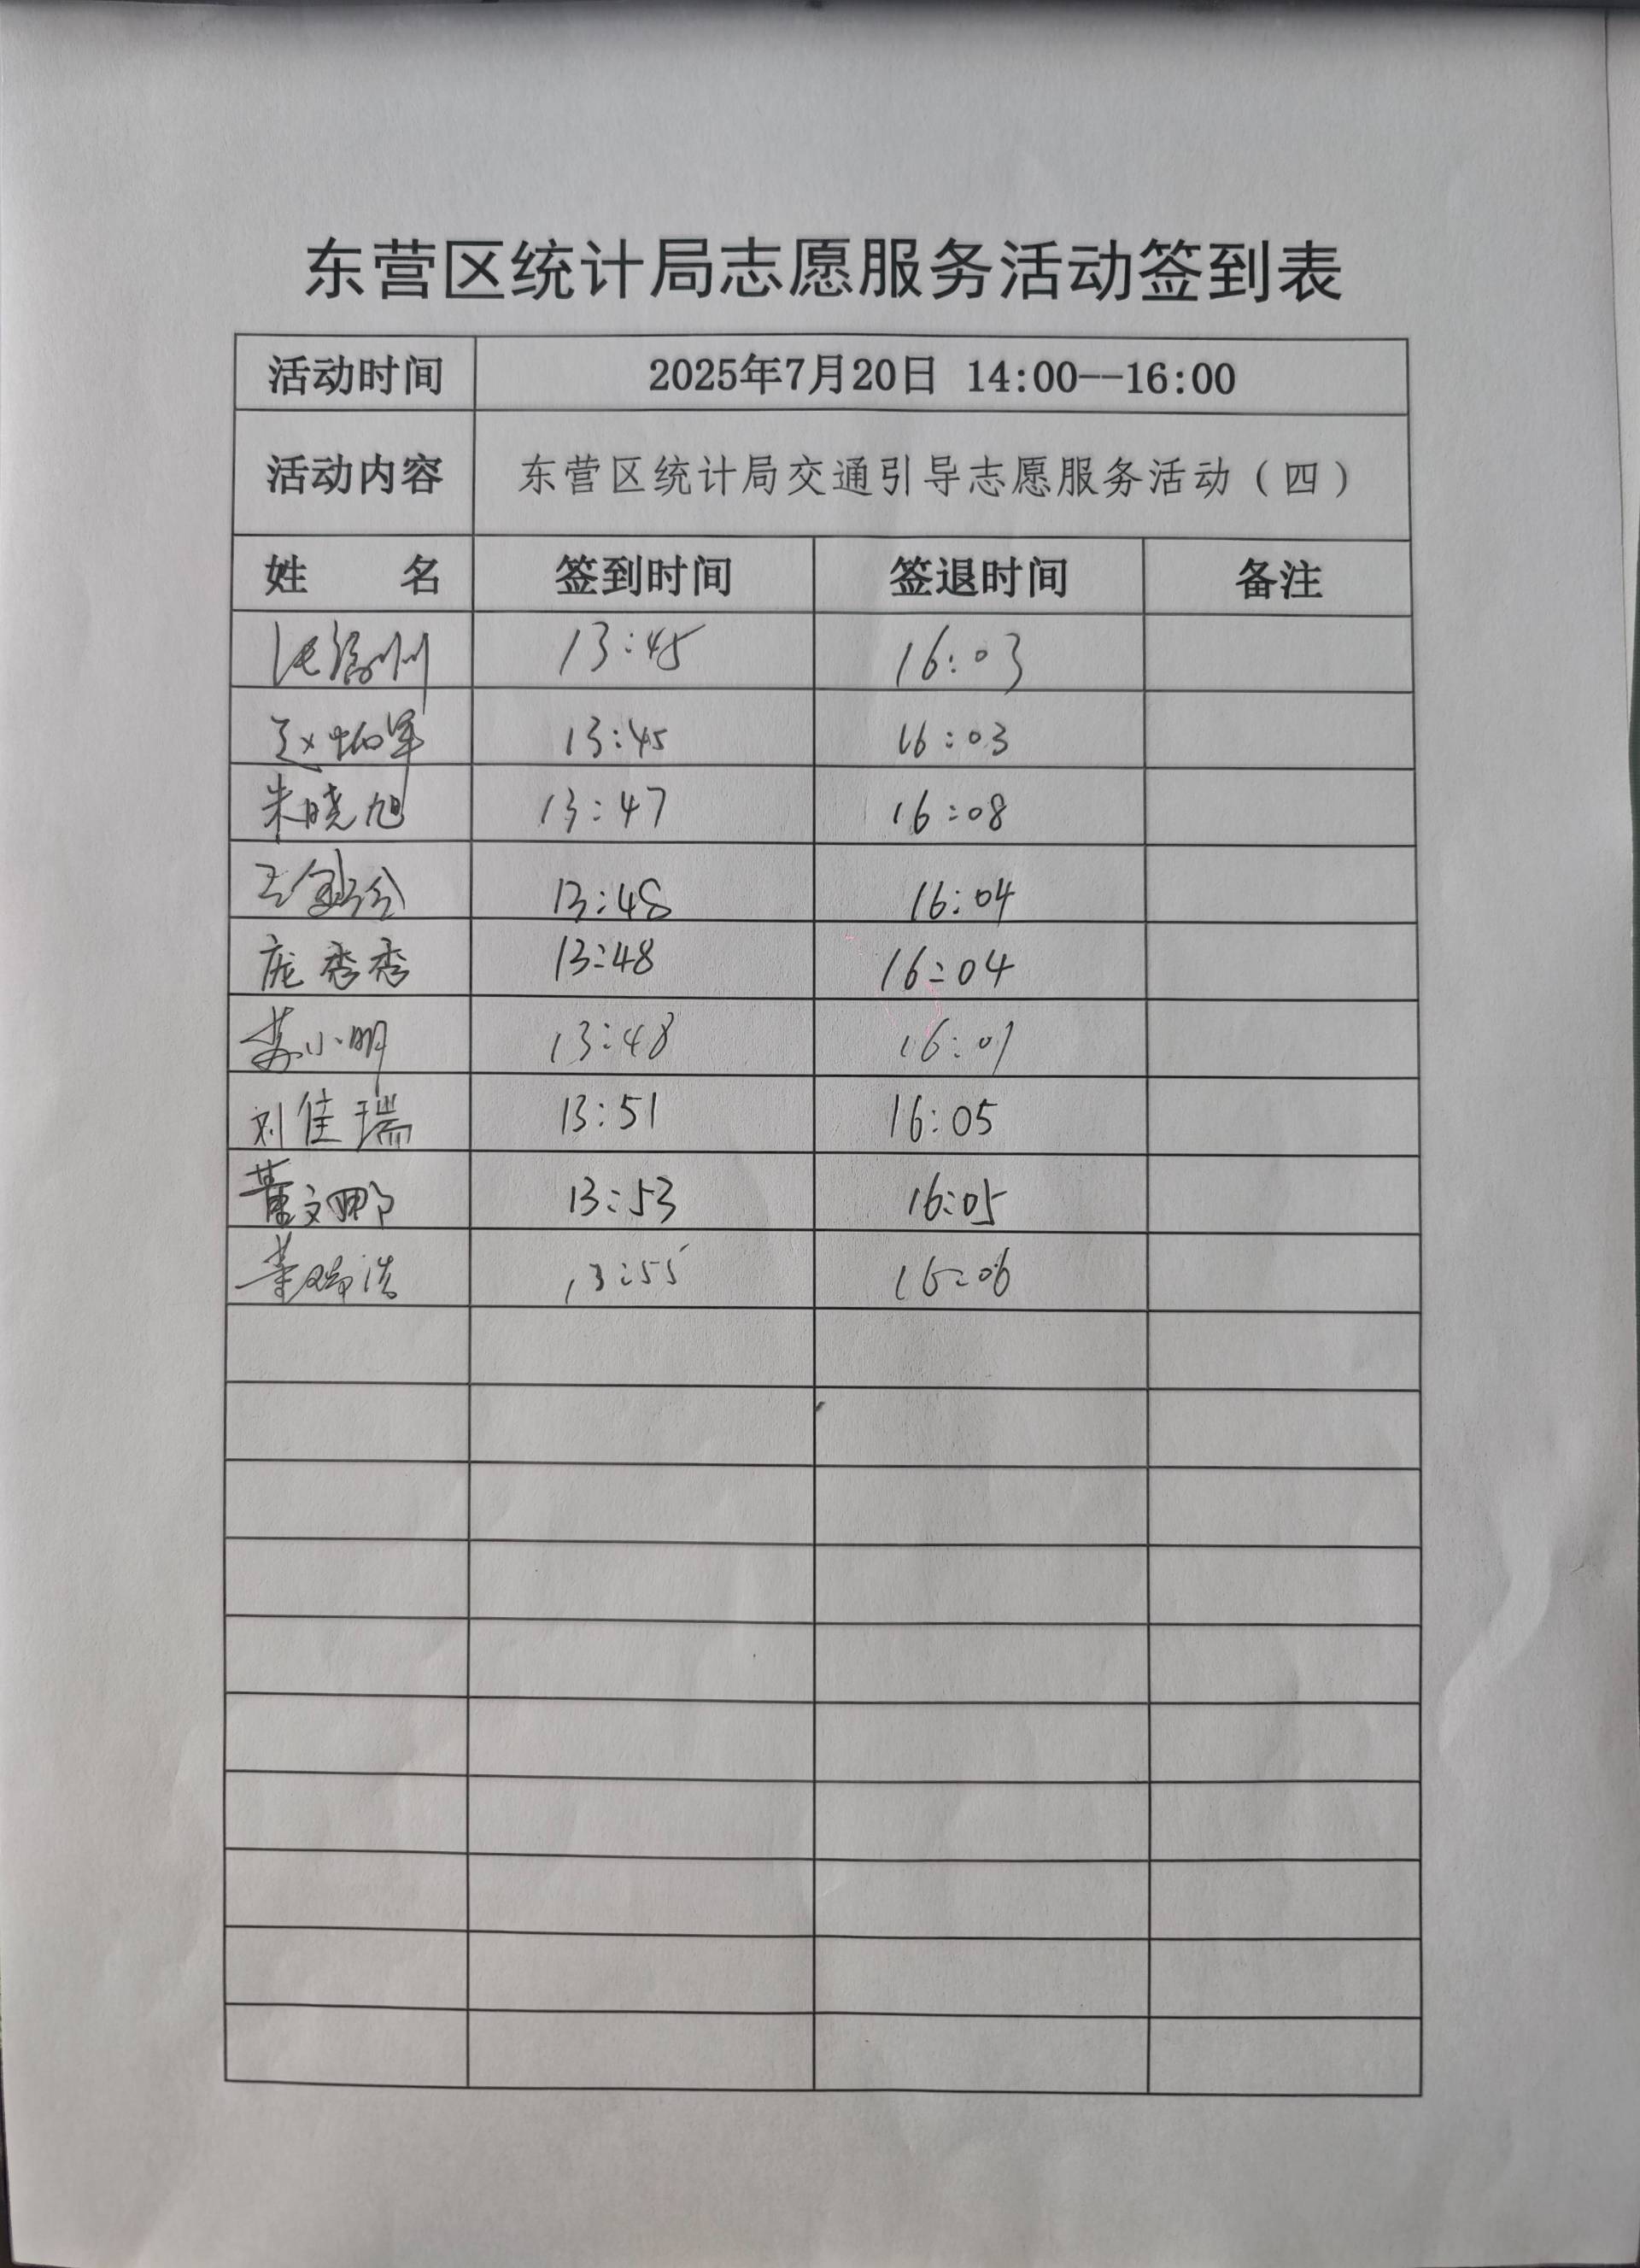 东营区统计局志愿服务活动签到表
活动时间 2025年7月20日 14:00--16:00
活动内容 东营区统计局交通引导志愿服务活动（四）
姓 名 签到时间 签退时间 备注
13:45 16:03
13:45 16:03
朱晓旭 13:47 16:08
13:48 16:04
庞秀秀 13:48 16:04
苏小明 13:48
刘佳瑞 13:51 16:05
董文娜 13:53 16:05
13:55 16:06